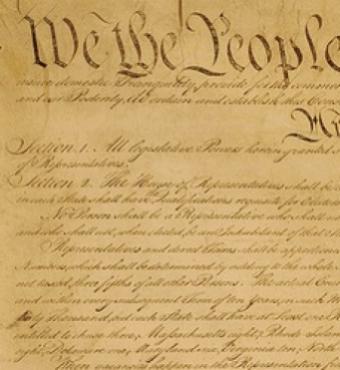 We the People
insure domestic Tranquility, provide for the common
and our Posterity, do ordain and establish this Cons
Section. 1. All legislative Powers herein granted
of Representatives.
Section. 2. The House of Representatives shall be
in each State shall have Qualifications requisite for Electors
No Person shall be a Representative who shall not
and who shall not, when elected, be an Inhabitant of that
Representatives and direct Taxes shall be apportioned
Numbers, which shall be determined by adding to the whole
not taxed, three fifths of all other Persons. The actual Enu
and within every subsequent Term of ten Years, in such M
thirty Thousand, but each State shall have at Least one
entitled to chuse three, Massachusetts eight, Rhode Islan
eight, Delaware one, Maryland six, Virginia ten, North
When vacancies happen in the Representation fr